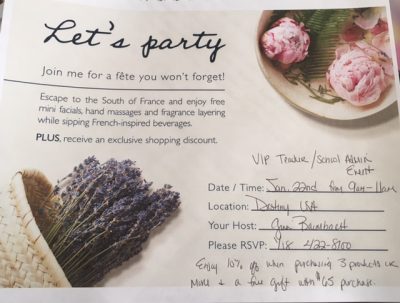 Let's party
Join me for a fête you won't forget!
Escape to the South of France and enjoy free
mini facials, hand massages and fragrance layering
while sipping French-inspired beverages.
PLUS, receive an exclusive shopping discount.
VIP Teacher/School Admin
Event
Date / Time: Jan. 22nd from 9am-11am
Location: Destiny USA
Your Host:
Please RSVP: 422-8700
Enjoy 10% off when purchasing 3 products or
more & a free gift with $65 purchase.